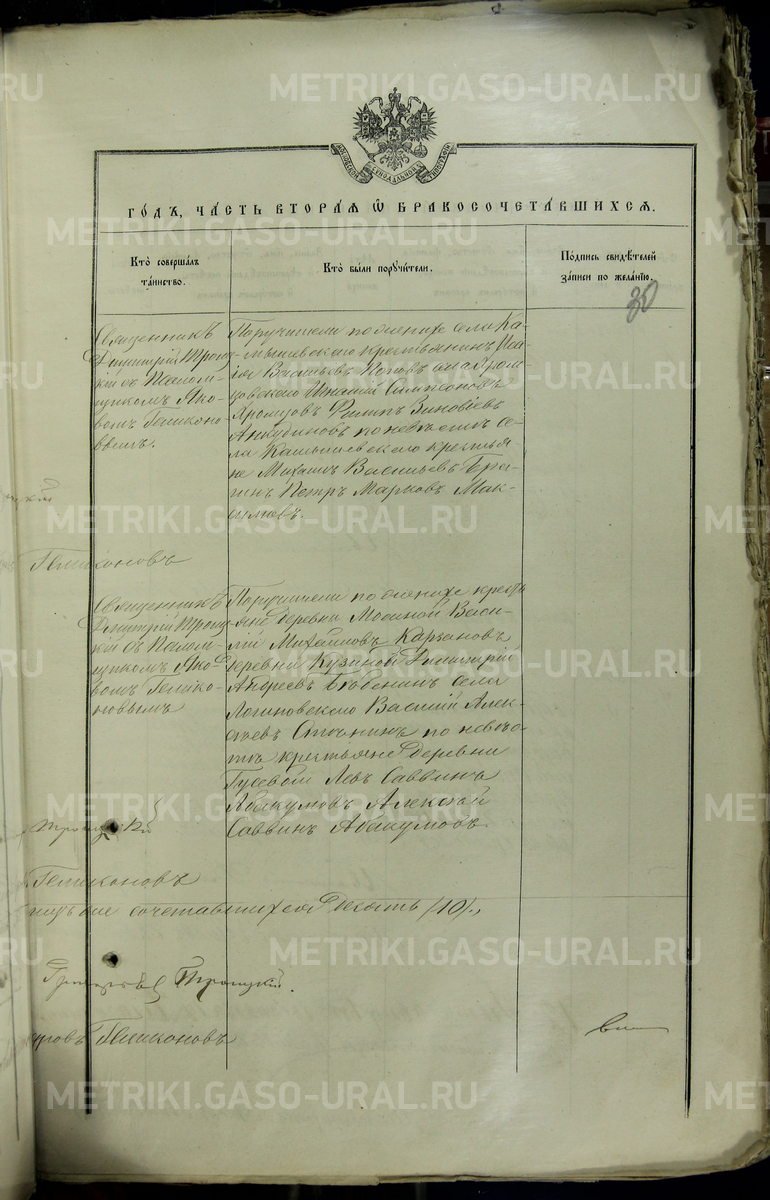 METRIKI.GASO-URAL.RU
МОСКОВСКОЙ СѴНОДАЛЬНОЙ ТИПОГРАФІИ
ГОДЪ, ЧАСТЬ ВТОРАЯ Ѡ БРАКОСОЧЕТАВШИХСЯ.
Кто совершалъ таинство.
Кто были поручители.
Подпись свидѣтелей записи по желанію.
30
Священникъ
Димитрій Троиц
кій съ Псалом
щикомъ Яко
вомъ Геликоно
вымъ.
Поручители по женихе села Ка
мышевскаго крестьянинъ Иса
ія Васильевъ Поповъ
Игнатій Сампсоновъ
Хромцовъ Филипъ Зиновіевъ
Анкудиновъ по невѣсте се
ла Камышевскаго крестья
не Михаилъ Васильевъ Бра
гинъ Петръ Марковъ Мак
симовъ.
Геликоновъ
Священникъ
Димитрій Троиц
кій съ Псалом
щикомъ Яко
вомъ Гелико
новымъ
Поручители по женихе кресть
яне деревни Мосиной Васи
лій Михайловъ Карзановъ
деревни Кузиной Димитрій
Андреевъ Бабенинъ села
Логиновскаго Василій Алек
сѣевъ по невѣс
тѣ крестьяне деревни
Гусевой Левъ Саввинъ
Абакумовъ Алексѣй
Саввинъ Абакумовъ.
Троицкій
Геликоновъ
сочетавшихся десять /10/.
Троицкій.
Геликоновъ
METRIKI.GASO-URAL.RU